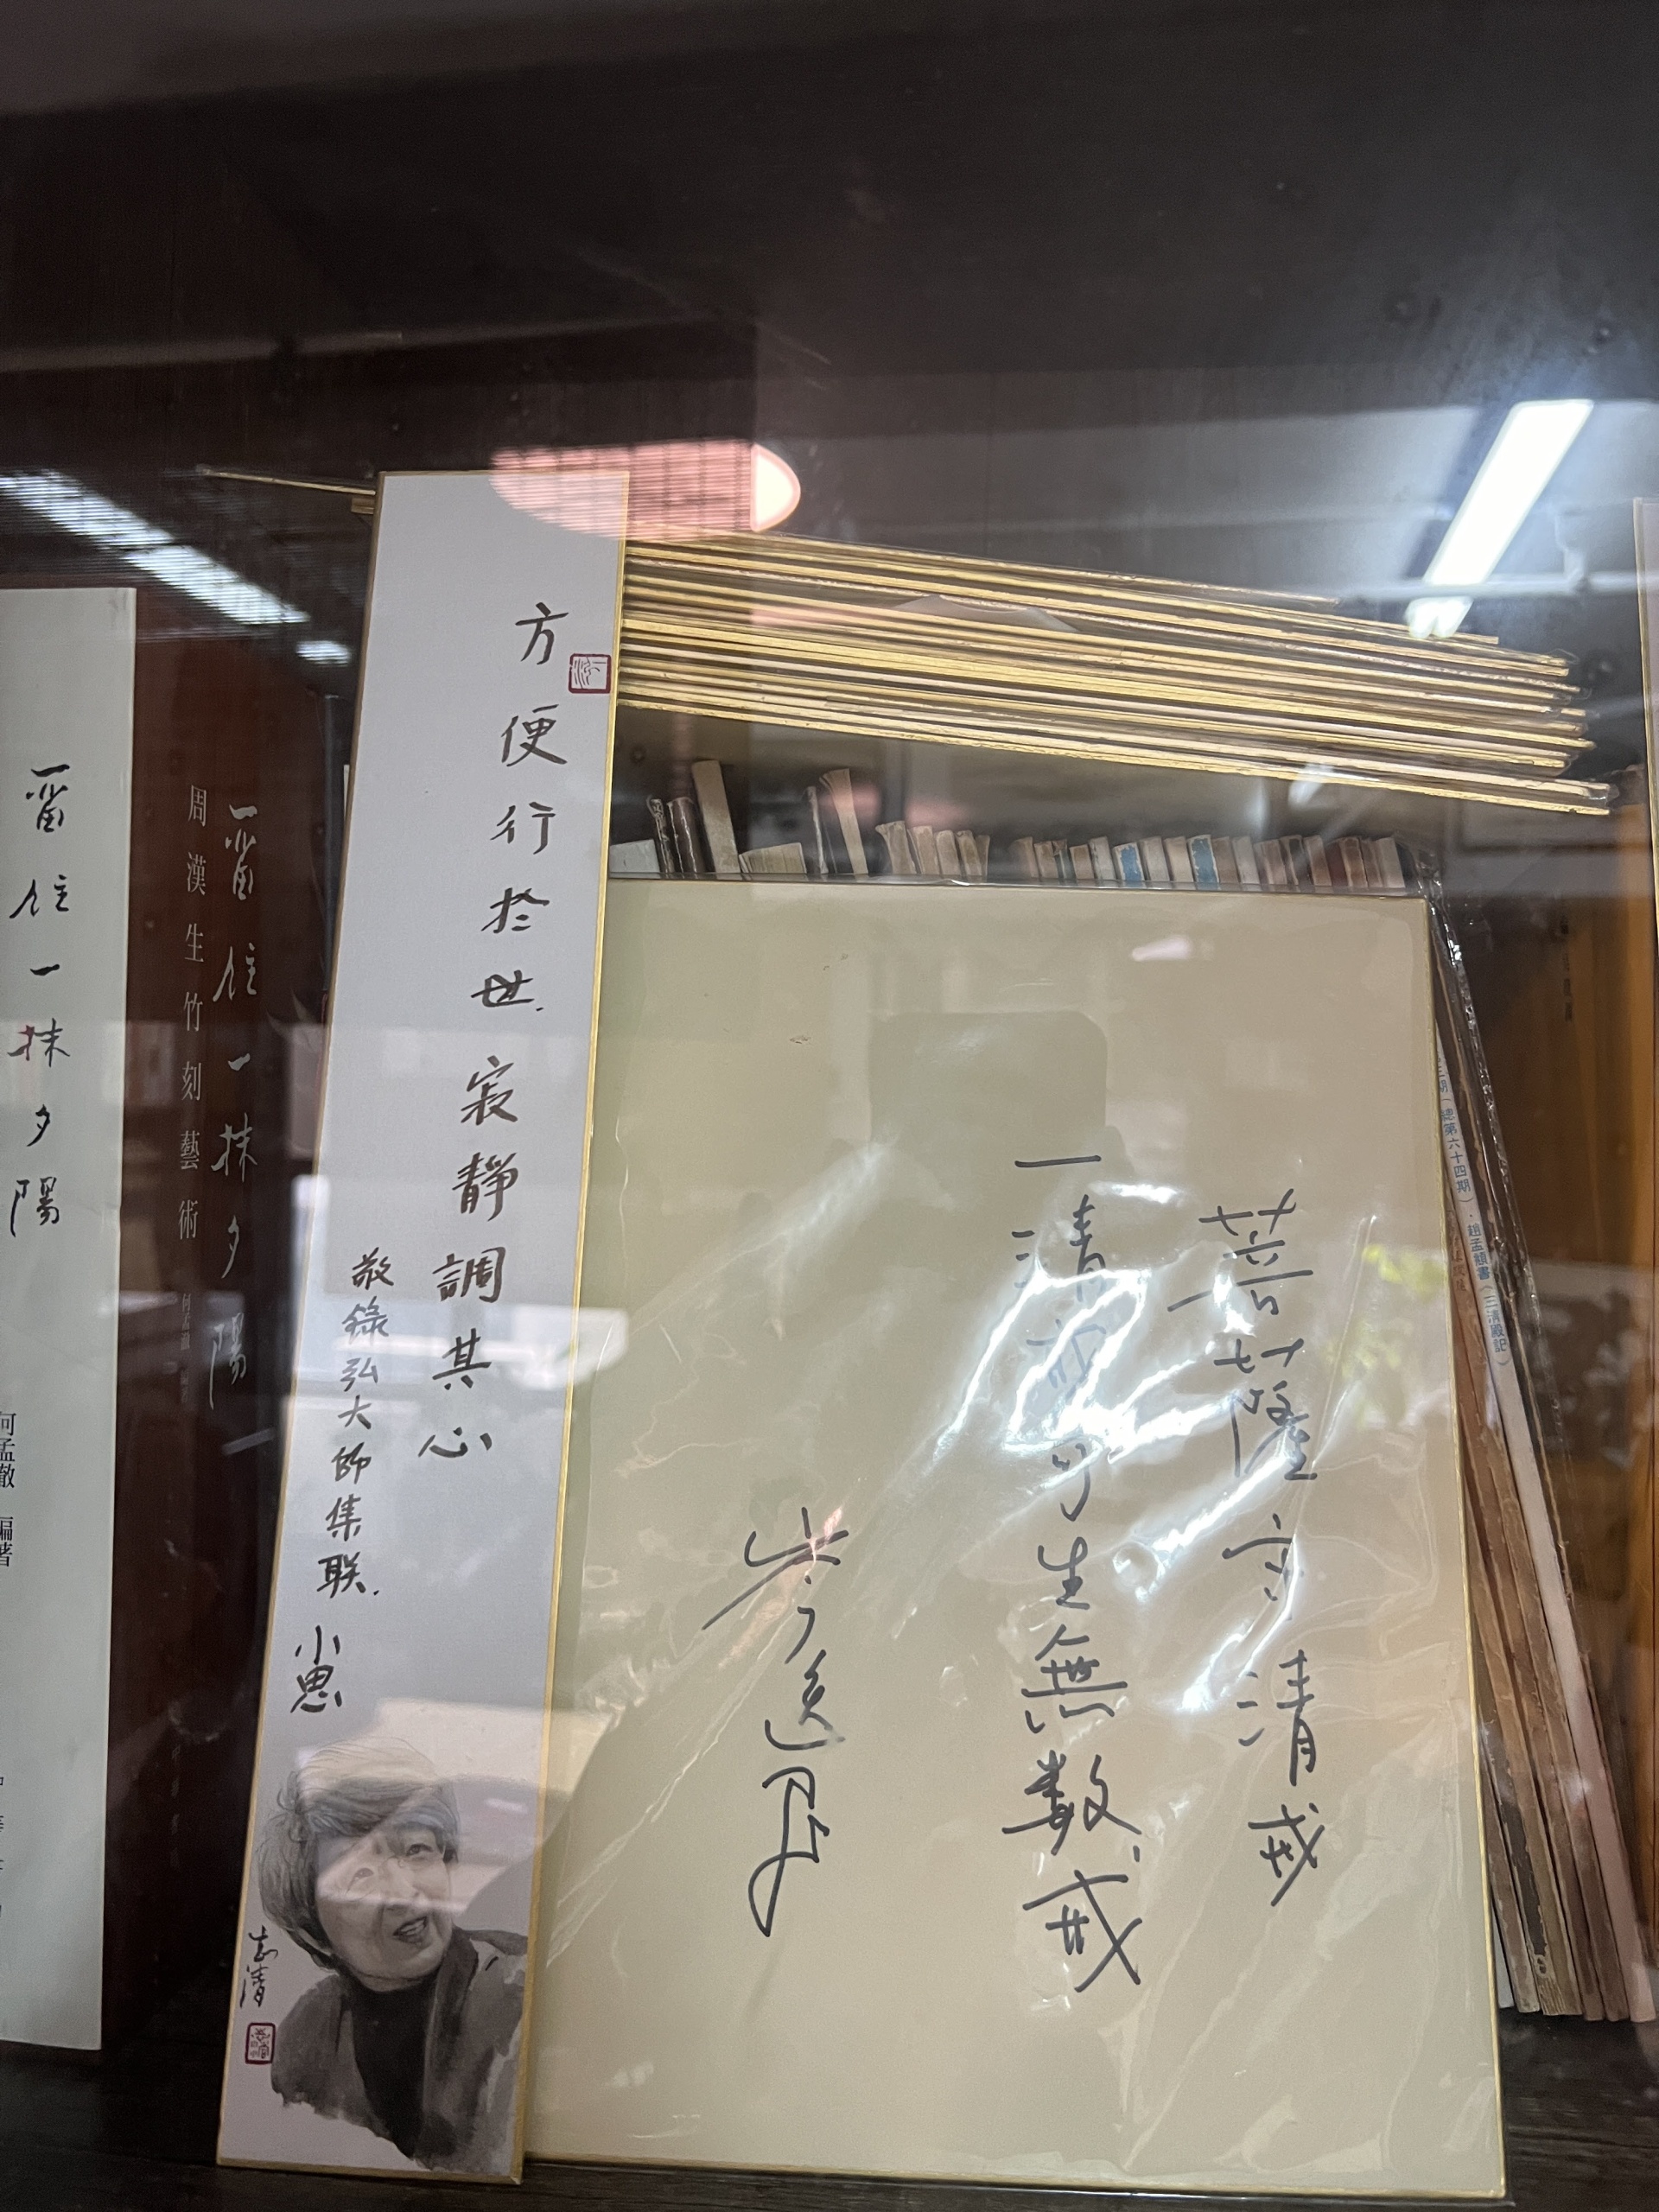 菩薩立清戒
一清
生無數戒
岑逸飛
方便行於世.寂靜調其心
敬錄弘大師集联.小思
志清
留住一抹夕陽
周漢生竹刻藝術
留住一抹夕陽
何孟澈 編著
三期(總第六十四期)·趙孟頫書(三清殿記)